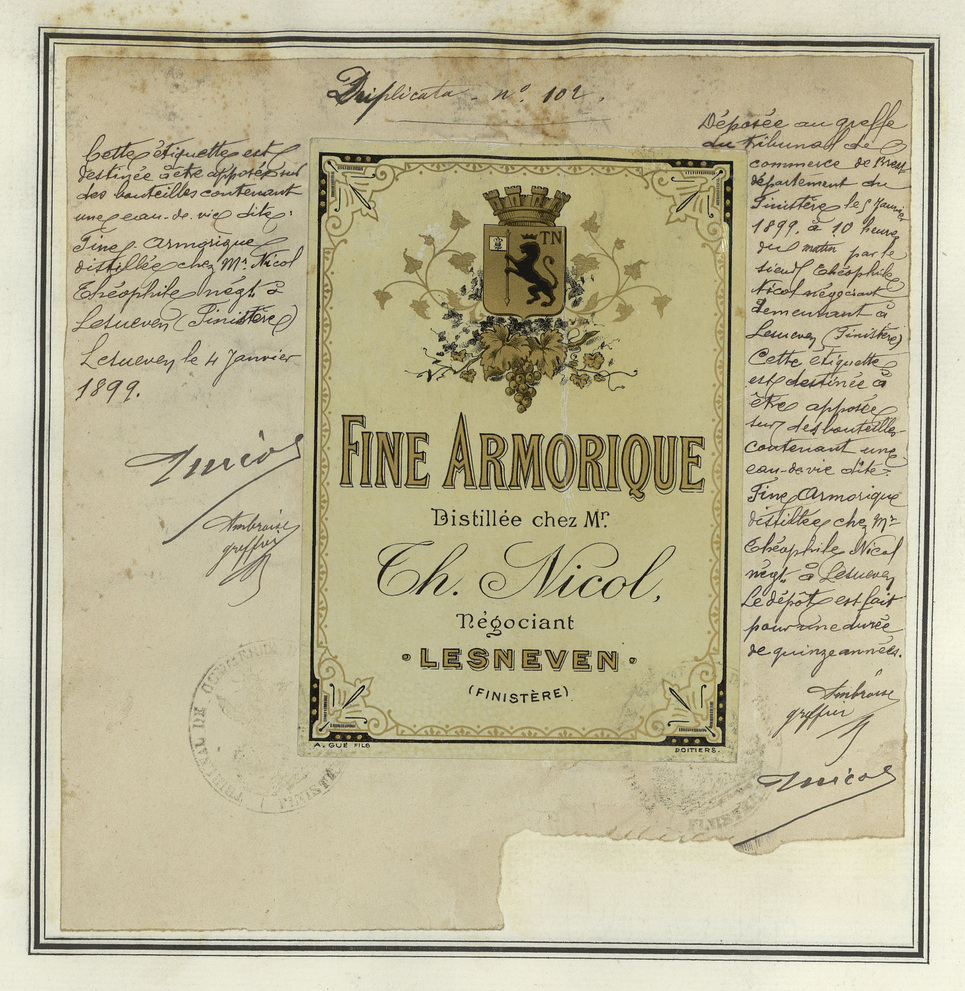 Duplicata - n° 102.
Cette étiquette est
destinée à être apposée sur
des bouteilles contenant
une eau-de-vie dite:
Fine Armorique
distillée chez Mr Nicol
Théophile négt à
Lesneven (Finistère)
Lesneven le 4 Janvier
1899.
Ambroise
greffier
TN
FINE ARMORIQUE
Distillée chez Mr.
Th. Nicol,
Négociant
LESNEVEN
(FINISTÈRE)
A. GUÉ FILS
POITIERS.
Déposée au greffe
du tribunal de
commerce de Brest
département du
Finistère le 5 Janvier
1899. à 10 heures
du matin par le
sieur Théophile
Nicol négociant
demeurant à
Lesneven (Finistère)
Cette étiquette
est destinée à
être apposée
sur des bouteilles
contenant une
eau-de-vie dite:
Fine Armorique
distillée chez Mr
Théophile Nicol
négt à Lesneven
Le dépôt est fait
pour une durée
de quinze années.
Ambroise
greffier
Thnicol
TRIBUNAL DE COMMERCE
FINISTÈRE